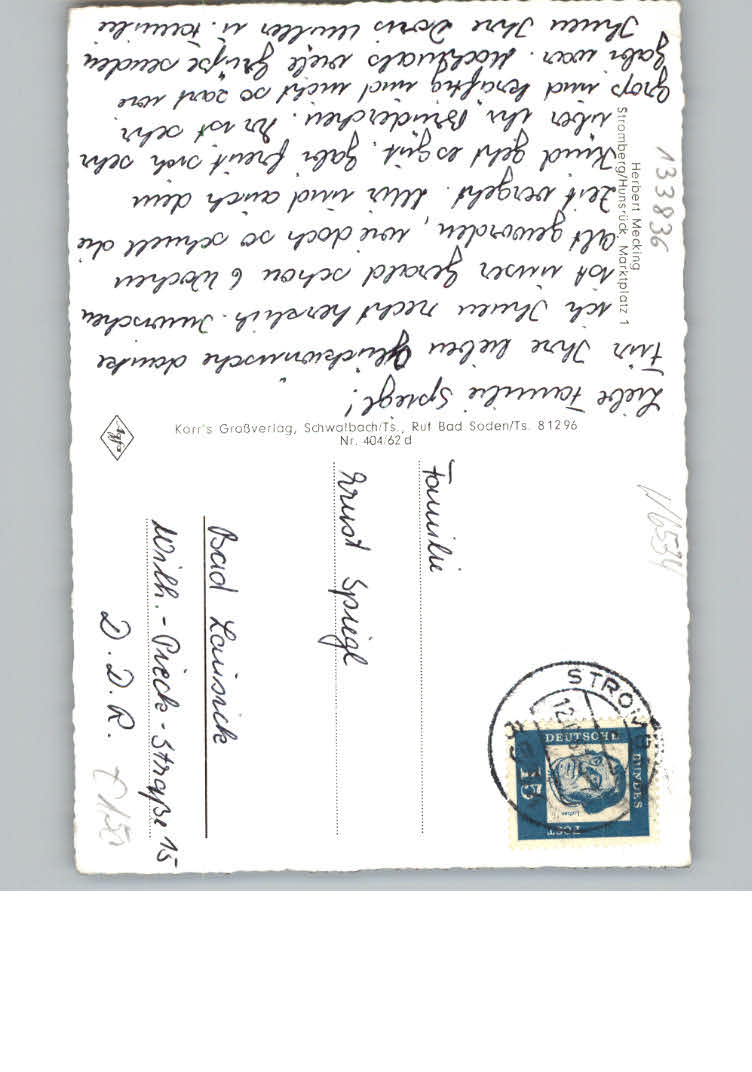 Liebe Familie Spiegl!
Für Ihre lieben Glückwünsche danke
ich Ihnen recht herzlich. Inzwischen
ist unser Gerald schon 6 Wochen
alt geworden, wie doch so schnell die
Zeit vergeht. Mir und auch dem
Kind geht es gut. Gabi freut sich sehr
über ihr Brüderchen. Er ist sehr
groß und kräftig und nicht so zart wie
Gabi war. Nochmals viele Grüße senden
Ihnen Ihre Doris Müller u. Familie
Herbert Mecking
Stromberg/Hunsrück, Marktplatz 1
133836
Agfa
Korr's Großverlag, Schwalbach/Ts., Ruf Bad Soden/Ts. 81296
Nr. 404/62 d
Familie
Ernst Spiegl
Bad Lausick
Wilh.-Pieck-Straße 15
D.D.R.
V/6534
STROMB
DEUTSCHE
BUNDES
POST
15
Luther